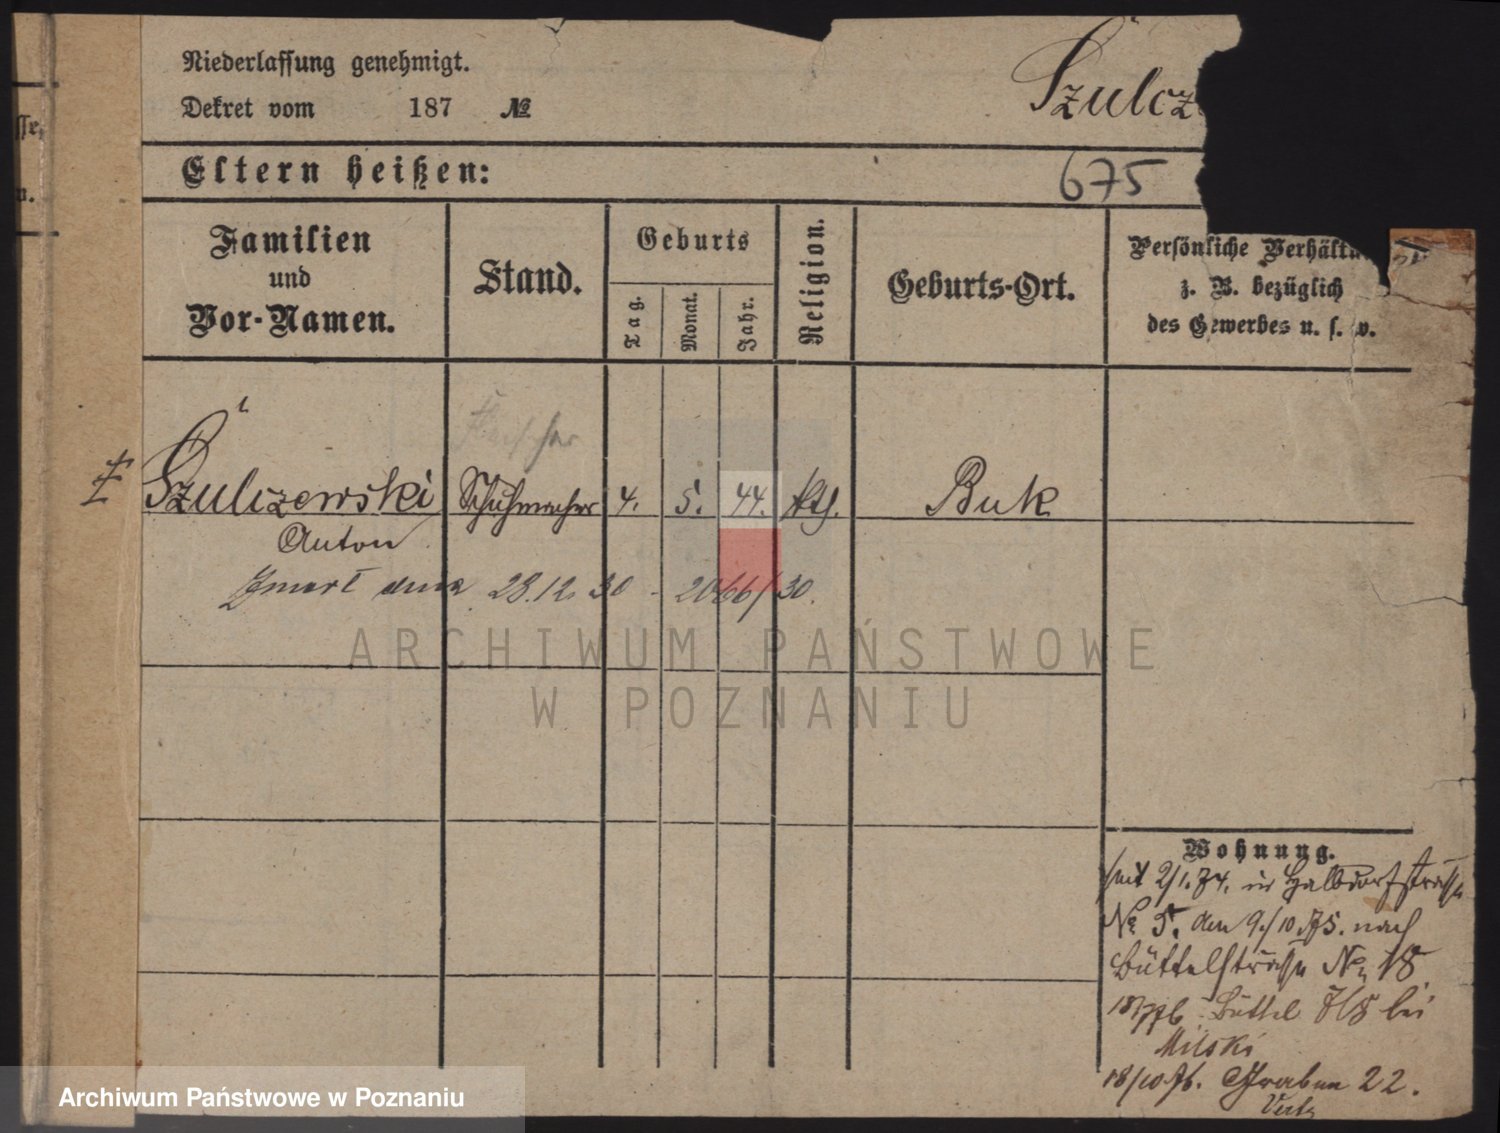 Niederlassung genehmigt.
Dekret vom 187 №
Szulcz
Eltern heißen:
675
Familien
und
Vor-Namen.
Stand.
Geburts
Tag.
Monat.
Jahr.
Religion.
Geburts-Ort.
Persönliche Verhält
z. B. bezüglich
des Gewerbes u. s. w.
Szulczewski
Schuhmacher
4.
5.
44.
kth.
Buk
Anton
Zmarł dnia 28.12.30 - 2066/30.
ARCHIWUM PAŃSTWOWE
W POZNANIU
Wohnung.
seit 2/1.74. in Halbdorfstraße
No 5. den 9/10.75. nach
Büttelstraße No 18
Büttel 7/8 bei
Milski
18/10 76. Graben 22.
Archiwum Państwowe w Poznaniu